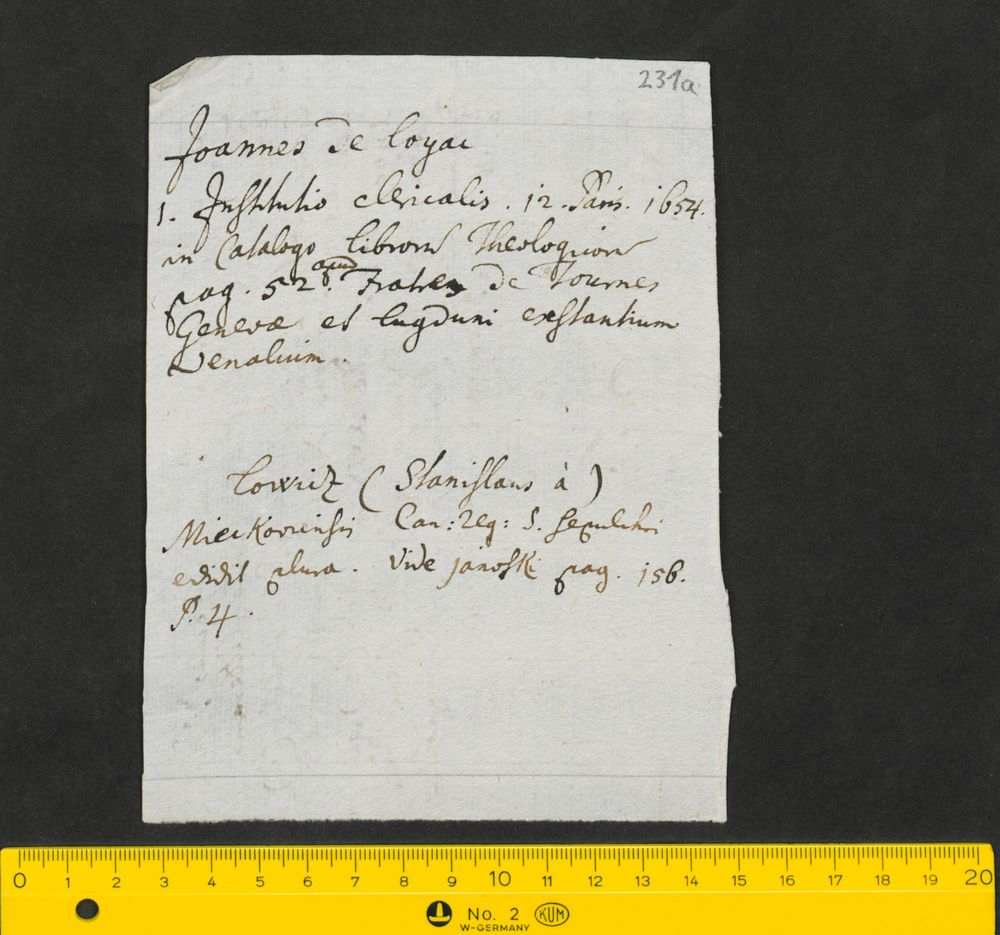 231a
Joannes De Loyac
1. Institutio clericalis. 12. Paris. 1654.
in Catalogo librorum Theologicorum
pag. 52. apud Fratres De Tournes
Genevæ et Lugduni exstantium
Venalium.
Lowicz (Stanislaus à)
Miechoviensis Can: Reg: S. Sepulchri
edidit plura. Vide Janoski pag. 156.
P. 4.
0 1 2 3 4 5 6 7 8 9 10 11 12 13 14 15 16 17 18 19 20
No. 2 KUM
W-GERMANY